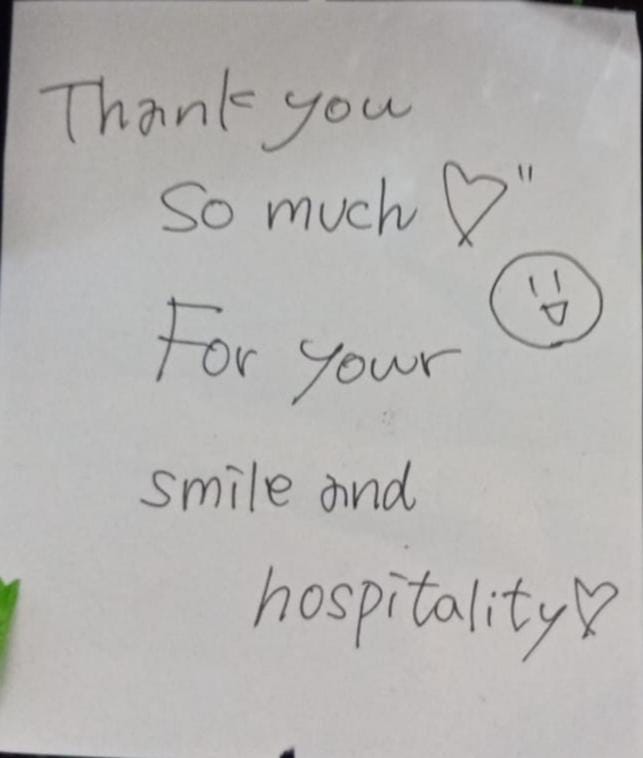 Thank you
so much ♡"
For your
smile and
hospitality♡